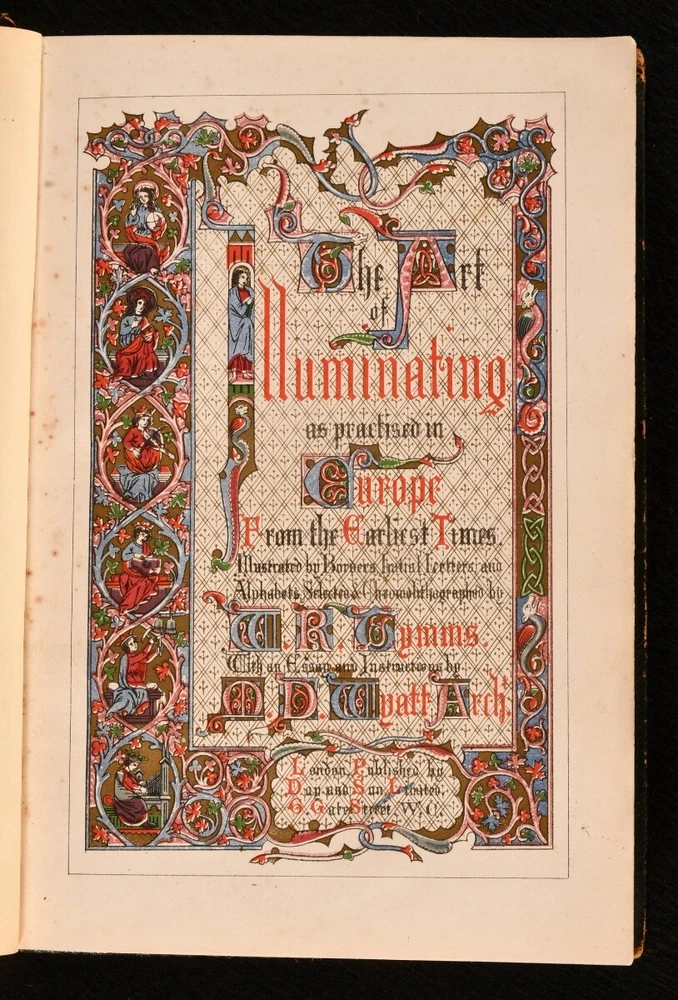 The Art
of
Illuminating
as practised in
Europe
From the Earliest Times.
Illustrated by Borders, Initial Letters, and
Alphabets, Selected & Chromolithographed by
W. R. Tymms.
With an Essay and Instructions by
M. D. Wyatt Archt.
London, Published by
Day and Son, Limited.
6, Gate Street, W.C.